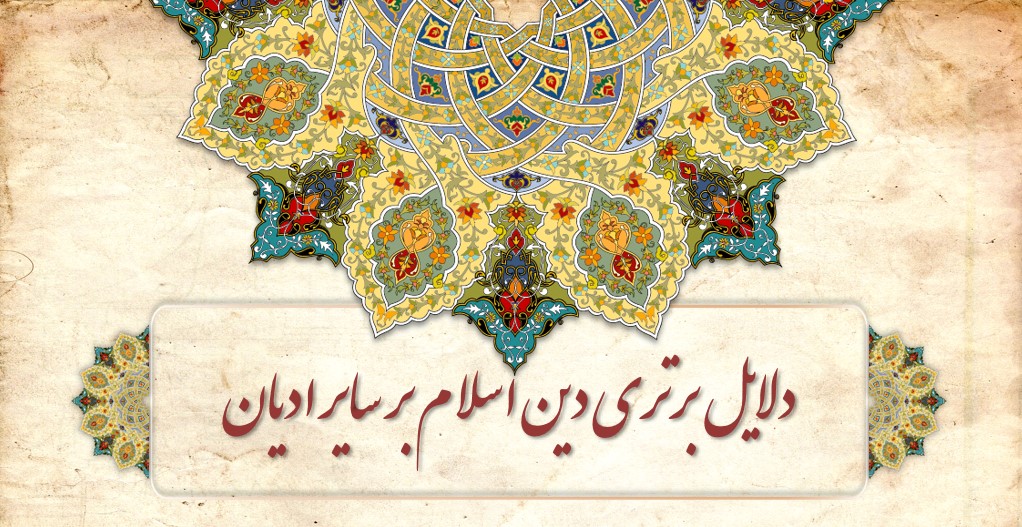 دلایل برتری دین اسلام بر سایر ادیان